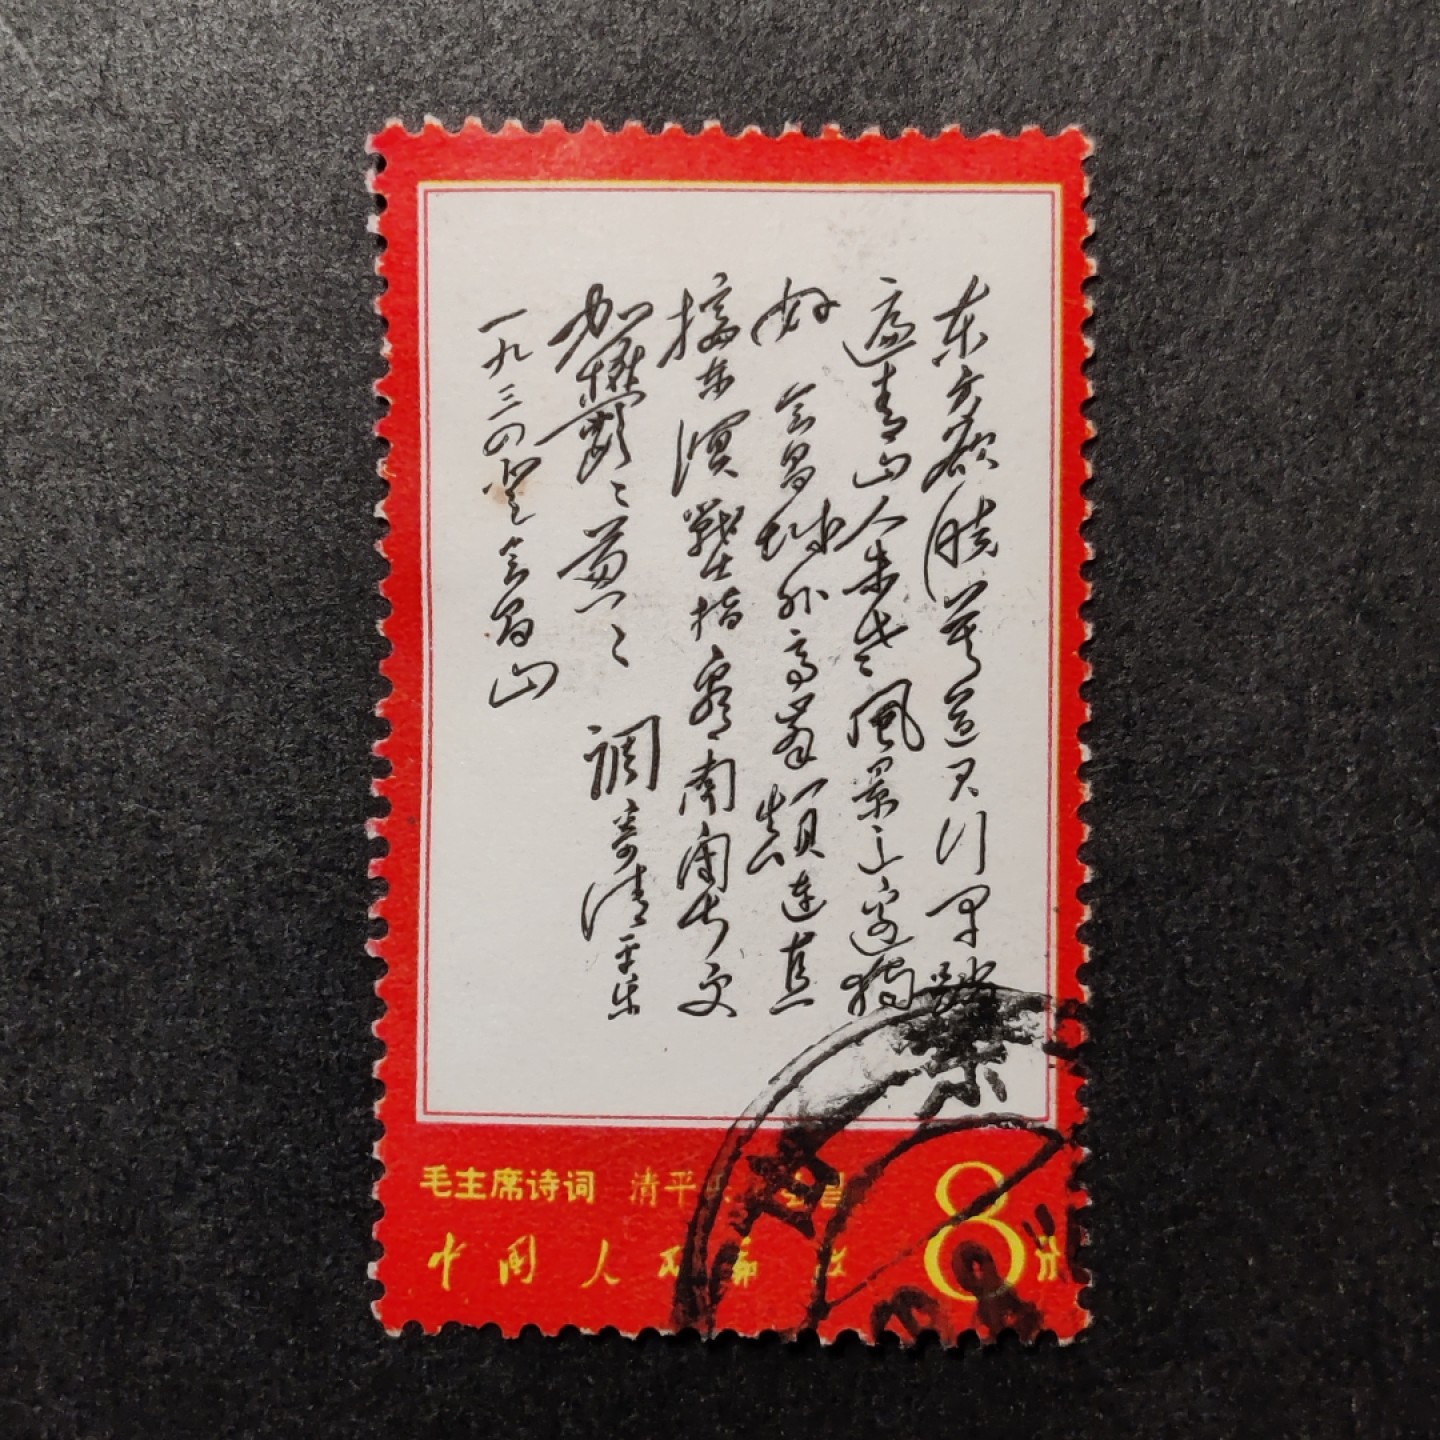 东方欲晓莫道君行早踏
遍青山人未老風景这边独
好 会昌城外高峰颠连直
接东溟戰士指看南粤更
加鬱〻葱〻 调寄清平乐
一九三四登会昌山
毛主席诗词 清平
中国人民邮政
8分